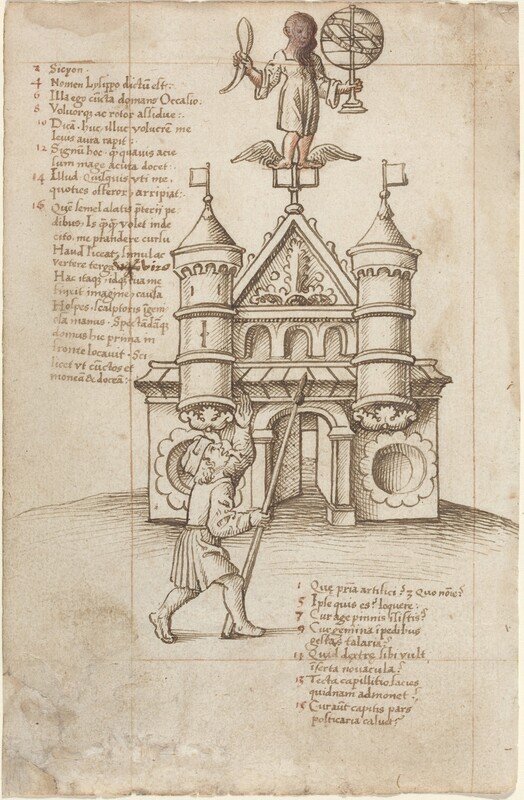 2 Sicyon.
4 Nomen Lysippo dictū est:.
6 Illa ego cūcta domans Occasio.
8 Voluorqȝ ac rotor assidue:.
10 Dicā. huc illuc volucrem me
leuis aura rapit:
12 Signū hoc. qȝ quauis acie
sum mage acuta docet.
14 Illud. Quisquis vti me.
quoties offeror, arripiat:.
16 Que semel alatis pterii pe
dibus. Is qȝ volet inde
cito. me prandere cursu
Haud liceat. simulac
vertere terga
Hac itaqȝ
finxit imagine, causa
Hospes, sculptoris igen
manus. Spectādāqȝ
domus hic prima in
fronte locauit. Sci
licet vt cūctos et
moneā & doceā:.
1 Que pria artifici? 2 Quo noīe?
5 Ipse quis es? loquere:
7 Cur age pinnis istis?
9 Cur gemina i pedibus
gestas talaria?
11 Quid dextre sibi vult
iserta nouacula?
13 Tecta capillitio facies
quidnam admonet:.
15 Cur aūt capitis pars
posticaria caluet?